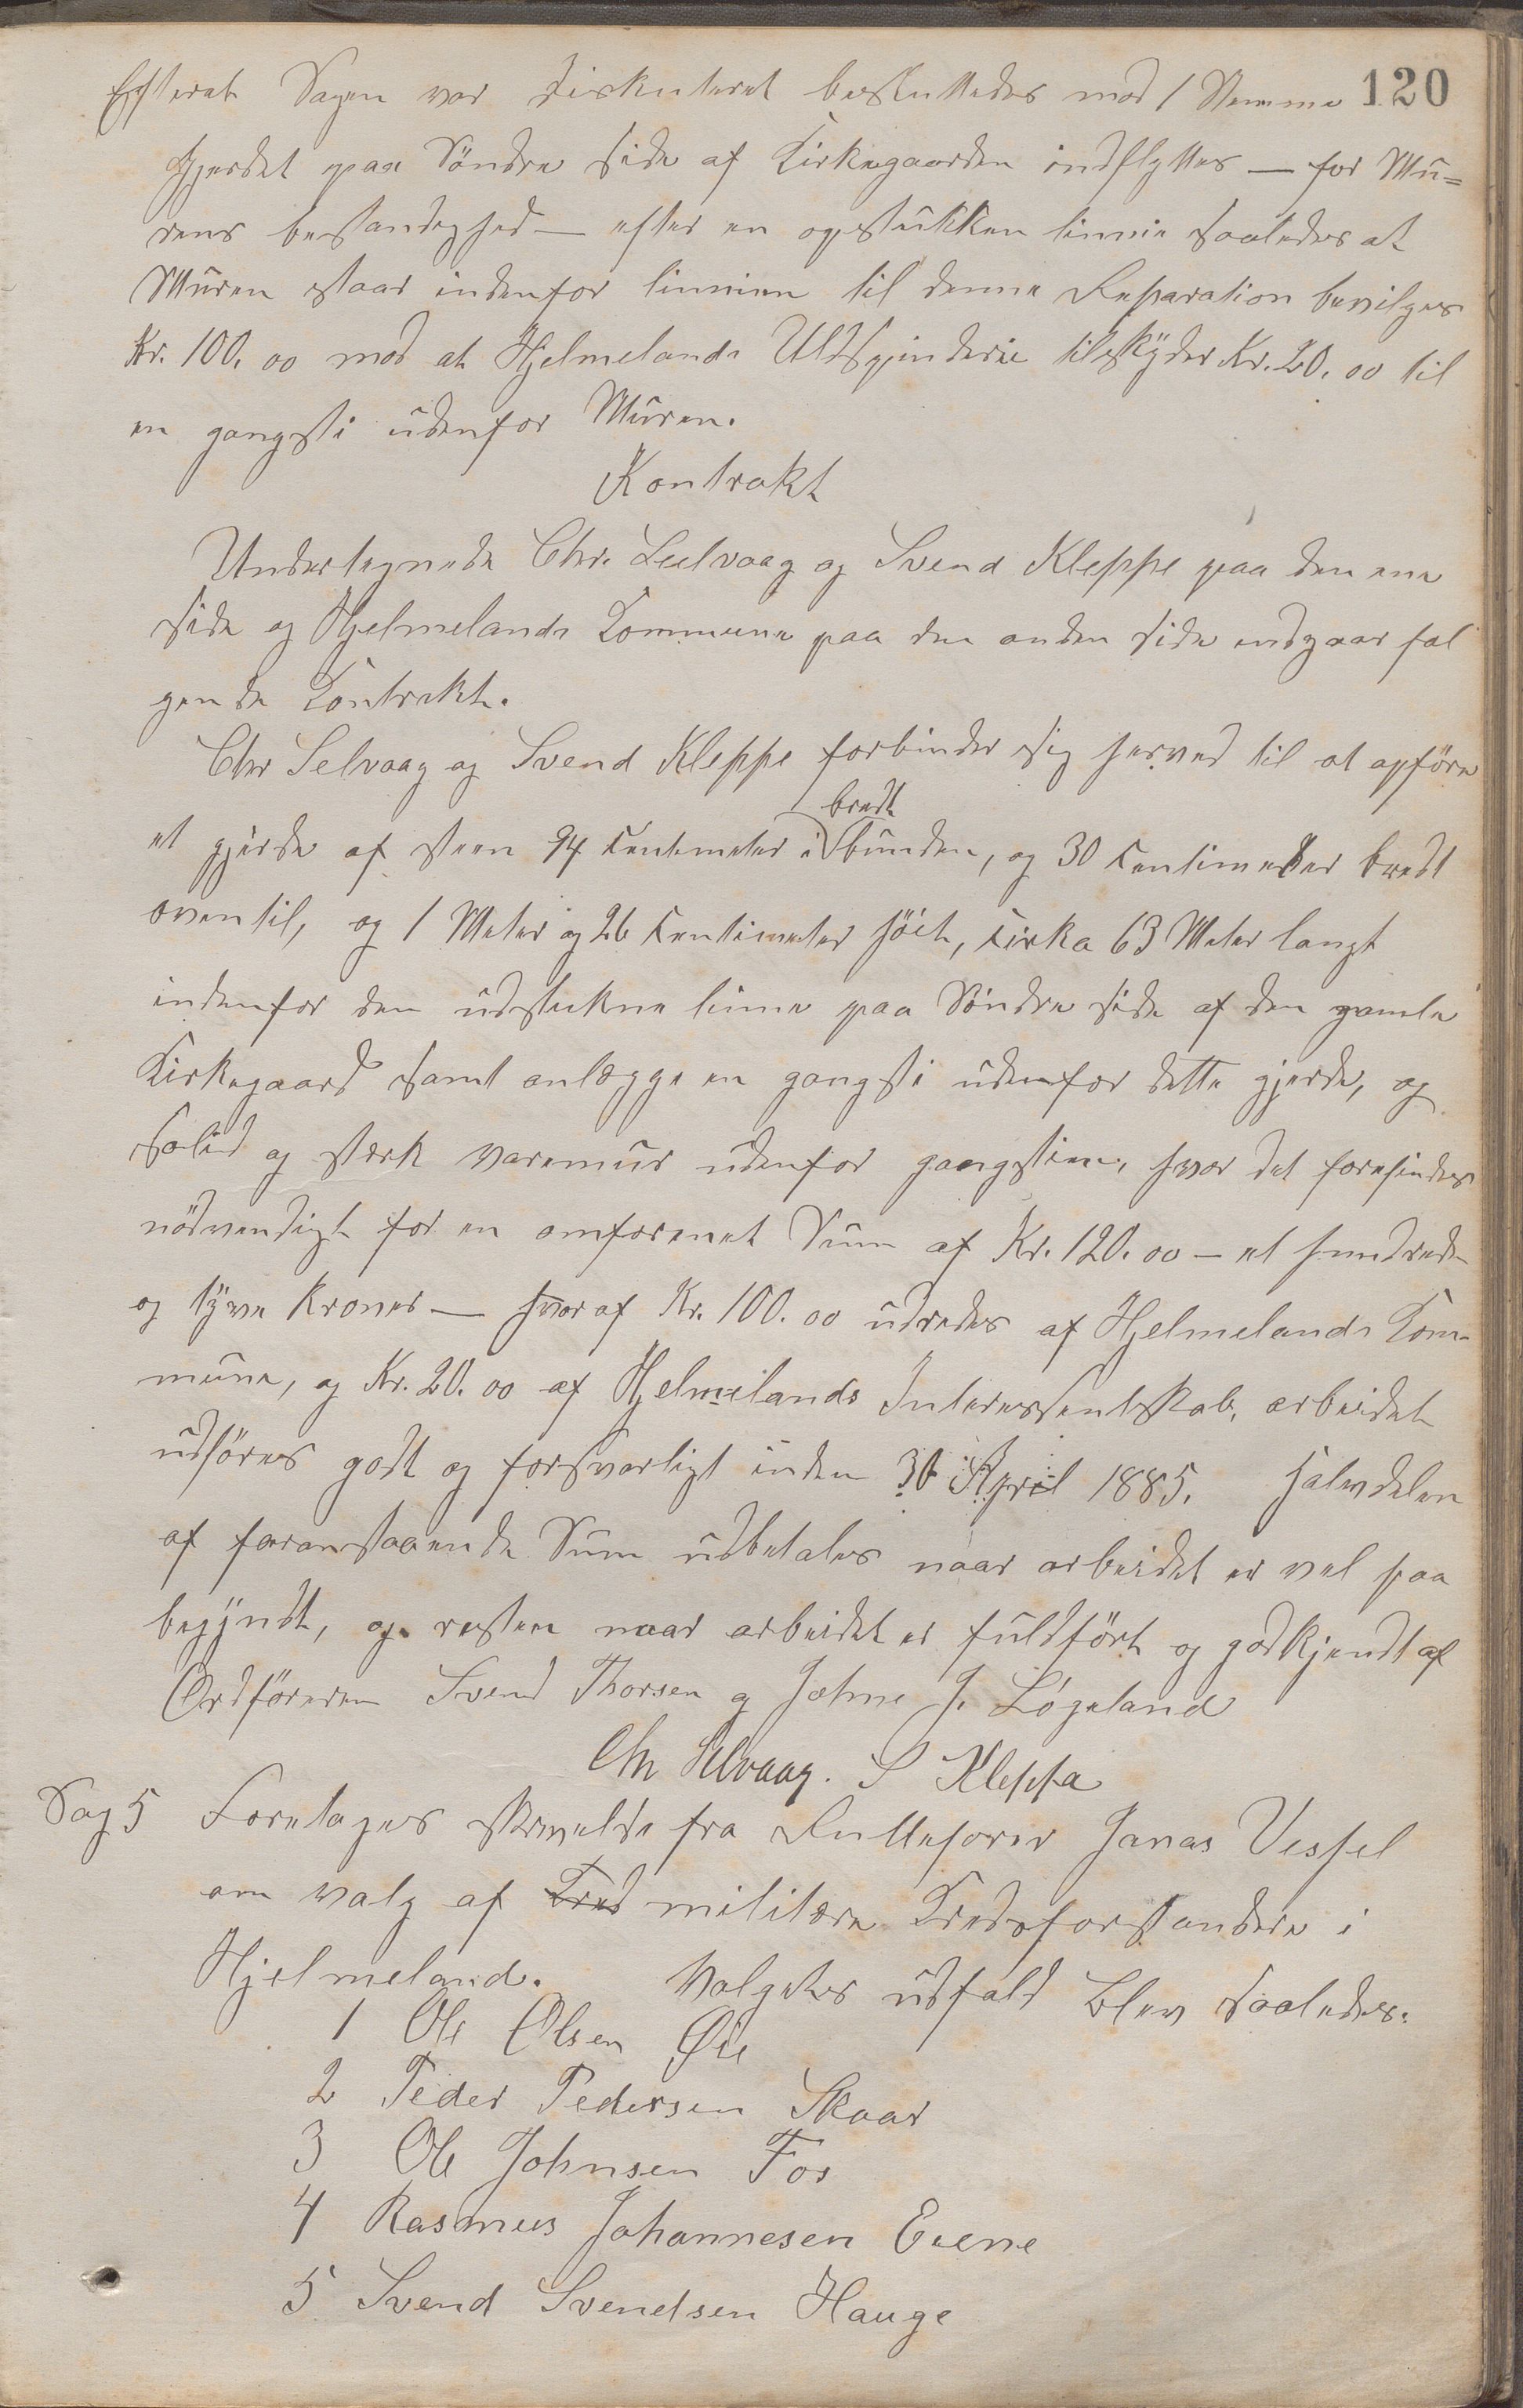 120
Efterat Sagen var diskuteret besluttedes mod 1 Stemme
Gjerdet paa Söndre side af Kirkegaarden indflyttes — for Mu=
rens bestandighed — efter en opstukken linnie saaledes at
Muren staar indenfor linnien til denne Reparation bevilges
Kr. 100. 00 mod at Hjelmelands Uldspinderie tilskyder Kr. 20. 00 til
en gangsti udenfor Muren.
Kontrakt
Undertegnede Chr. Selvaag og Svend Kleppe paa den ene
side og Hjelmelands Kommune paa den anden side indgaar föl
gende Kontrakt.
Chr Selvaag og Svend Kleppe forbinder sig herved til at opföre
et gjerde af steen 94 Centimeter bredt i bunden, og 30 Centimeter bredt
oventil, og 1 Meter og 26 Centimeter höit, Cirka 63 Meter langt
indenfor den udstukne linne paa Söndre side af den gamle
Kirkegaard samt anlægge en gangsti udenfor dette gjerde, og
solid og sterk varemur udenfor gangstien, hvor det forefindes
nödvendigt for en omforenet Sum af Kr. 120. 00 — et hundrede
og tyve Kroner — hvoraf Kr. 100. 00 udredes af Hjelmelands Kom-
mune, og Kr. 20. 00 af Hjelmelands Interessentskab, arbeidet
udföres godt og forsvarligt inden 30 April 1885. Halvdelen
af foranstaaende Sum udbetales naar arbeidet er vel paa
begyndt, og resten naar arbeidet er fuldfört og godkjendt af
Ordföreren Svend Thorsen og Johne J. Løgeland
Chr Selvaag. S Kleppa
Sag 5 Foretages skrivelse fra Rullefører Jonas Vessel
om valg af Kred militære Kredsforstandere i
Hjelmeland. Valgetes udfald blev saaledes.
1 Ole Olsen Øie
2 Peder Pedersen Skaar
3 Ole Johnsen Fos
4 Rasmus Johannesen Eiene
5 Svend Svendsen Hauge